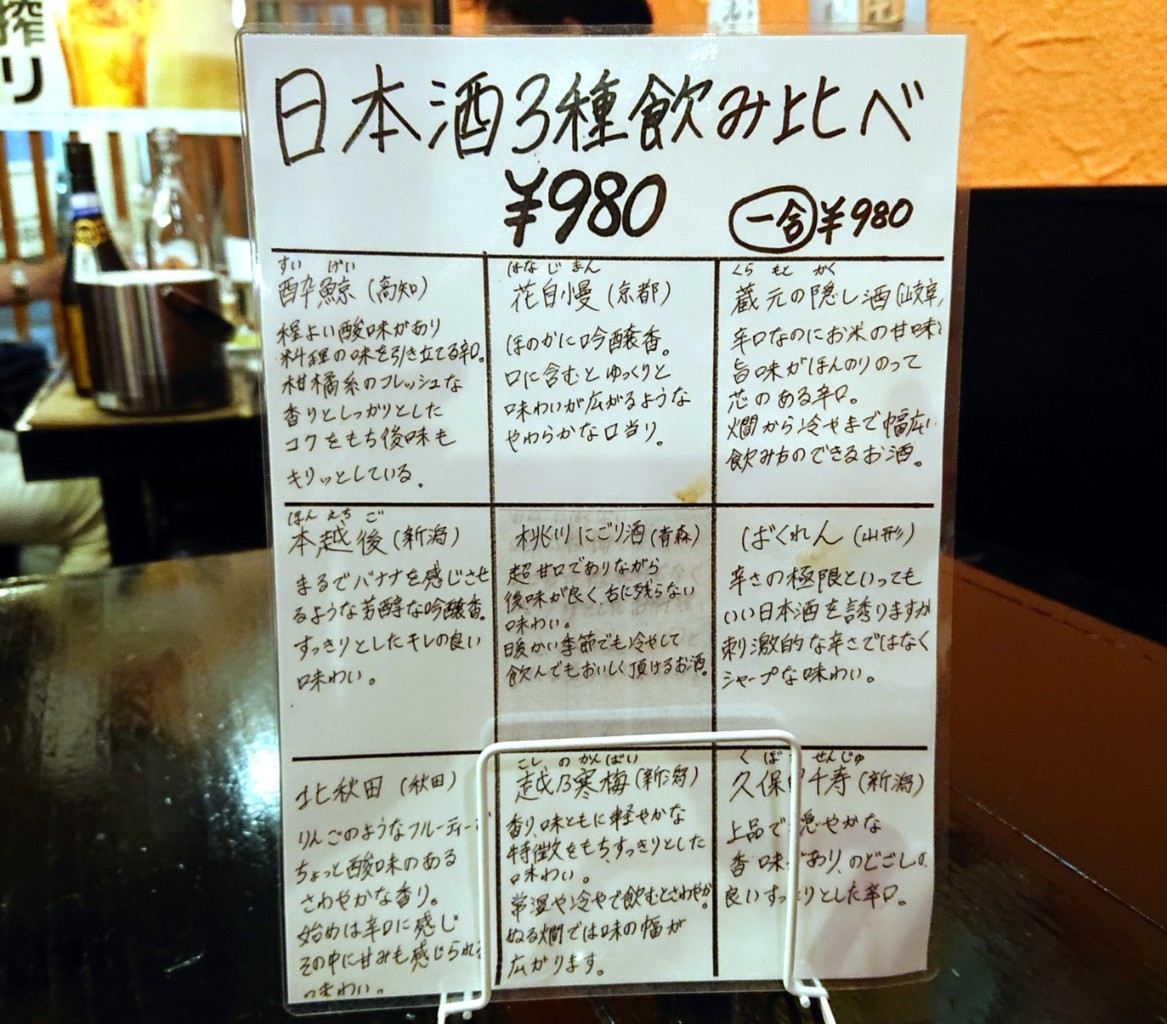 搾
リ
日本酒3種飲み比べ
¥980
一合 ¥980
すい げい
酔鯨(高知)
程よい酸味があり
料理の味を引き立てる辛口。
柑橘系のフレッシュな
香りとしっかりとした
コクをもち後味も
キリッとしている。
はな じ まん
花自慢(京都)
ほのかに吟醸香。
口に含むとゆっくりと
味わいが広がるような
やわらかな口当り。
くら もと かく
蔵元の隠し酒(山文章
辛口なのにお米の甘味と
旨味がほんのりのって
芯のある辛口。
燗から冷やまで幅広い
飲み方のできるお酒。
ほん えち ご
本越後(新潟)
まるでバナナを感じさせ
るような芳醇な吟醸香。
すっきりとしたキレの良い
味わい。
桃川にごり酒(青森)
超甘口でありながら
後味が良く舌に残らない
味わい。
暖かい季節でも冷やして
飲んでもおいしく頂けるお酒。
ばくれん(山形)
辛さの極限といっても
いい日本酒を誇りますが
刺激的な辛さではなく
シャープな味わい。
北秋田(秋田)
りんごのようなフルーティー
ちょっと酸味のある
さわやかな香り。
始めは辛口に感じ
その中に甘みも感じられる
味わい。
こし の かんばい
越乃寒梅(新潟)
香り、味ともに軽やかな
特徴をもちすっきりとした
味わい。
常温や冷やで飲むとさわやか。
ぬる燗では味の幅が
広がります。
く ぼ せんじゅ
久保田千寿(新潟)
上品で穏やかな
香味があり、のどごしの
良いすっきりとした辛口。